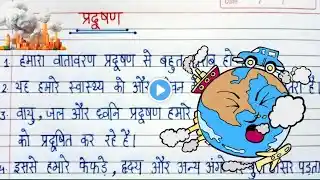 प्रदूषण
1. हमारा वातावरण प्रदूषण से बहुत
2. यह हमारे स्वास्थ्य को और
3. वायु, जल और ध्वनि प्रदूषण हमारे
को प्रदूषित कर रहे है।
4. इससे हमारे फेफड़े, हृदय और अन्य